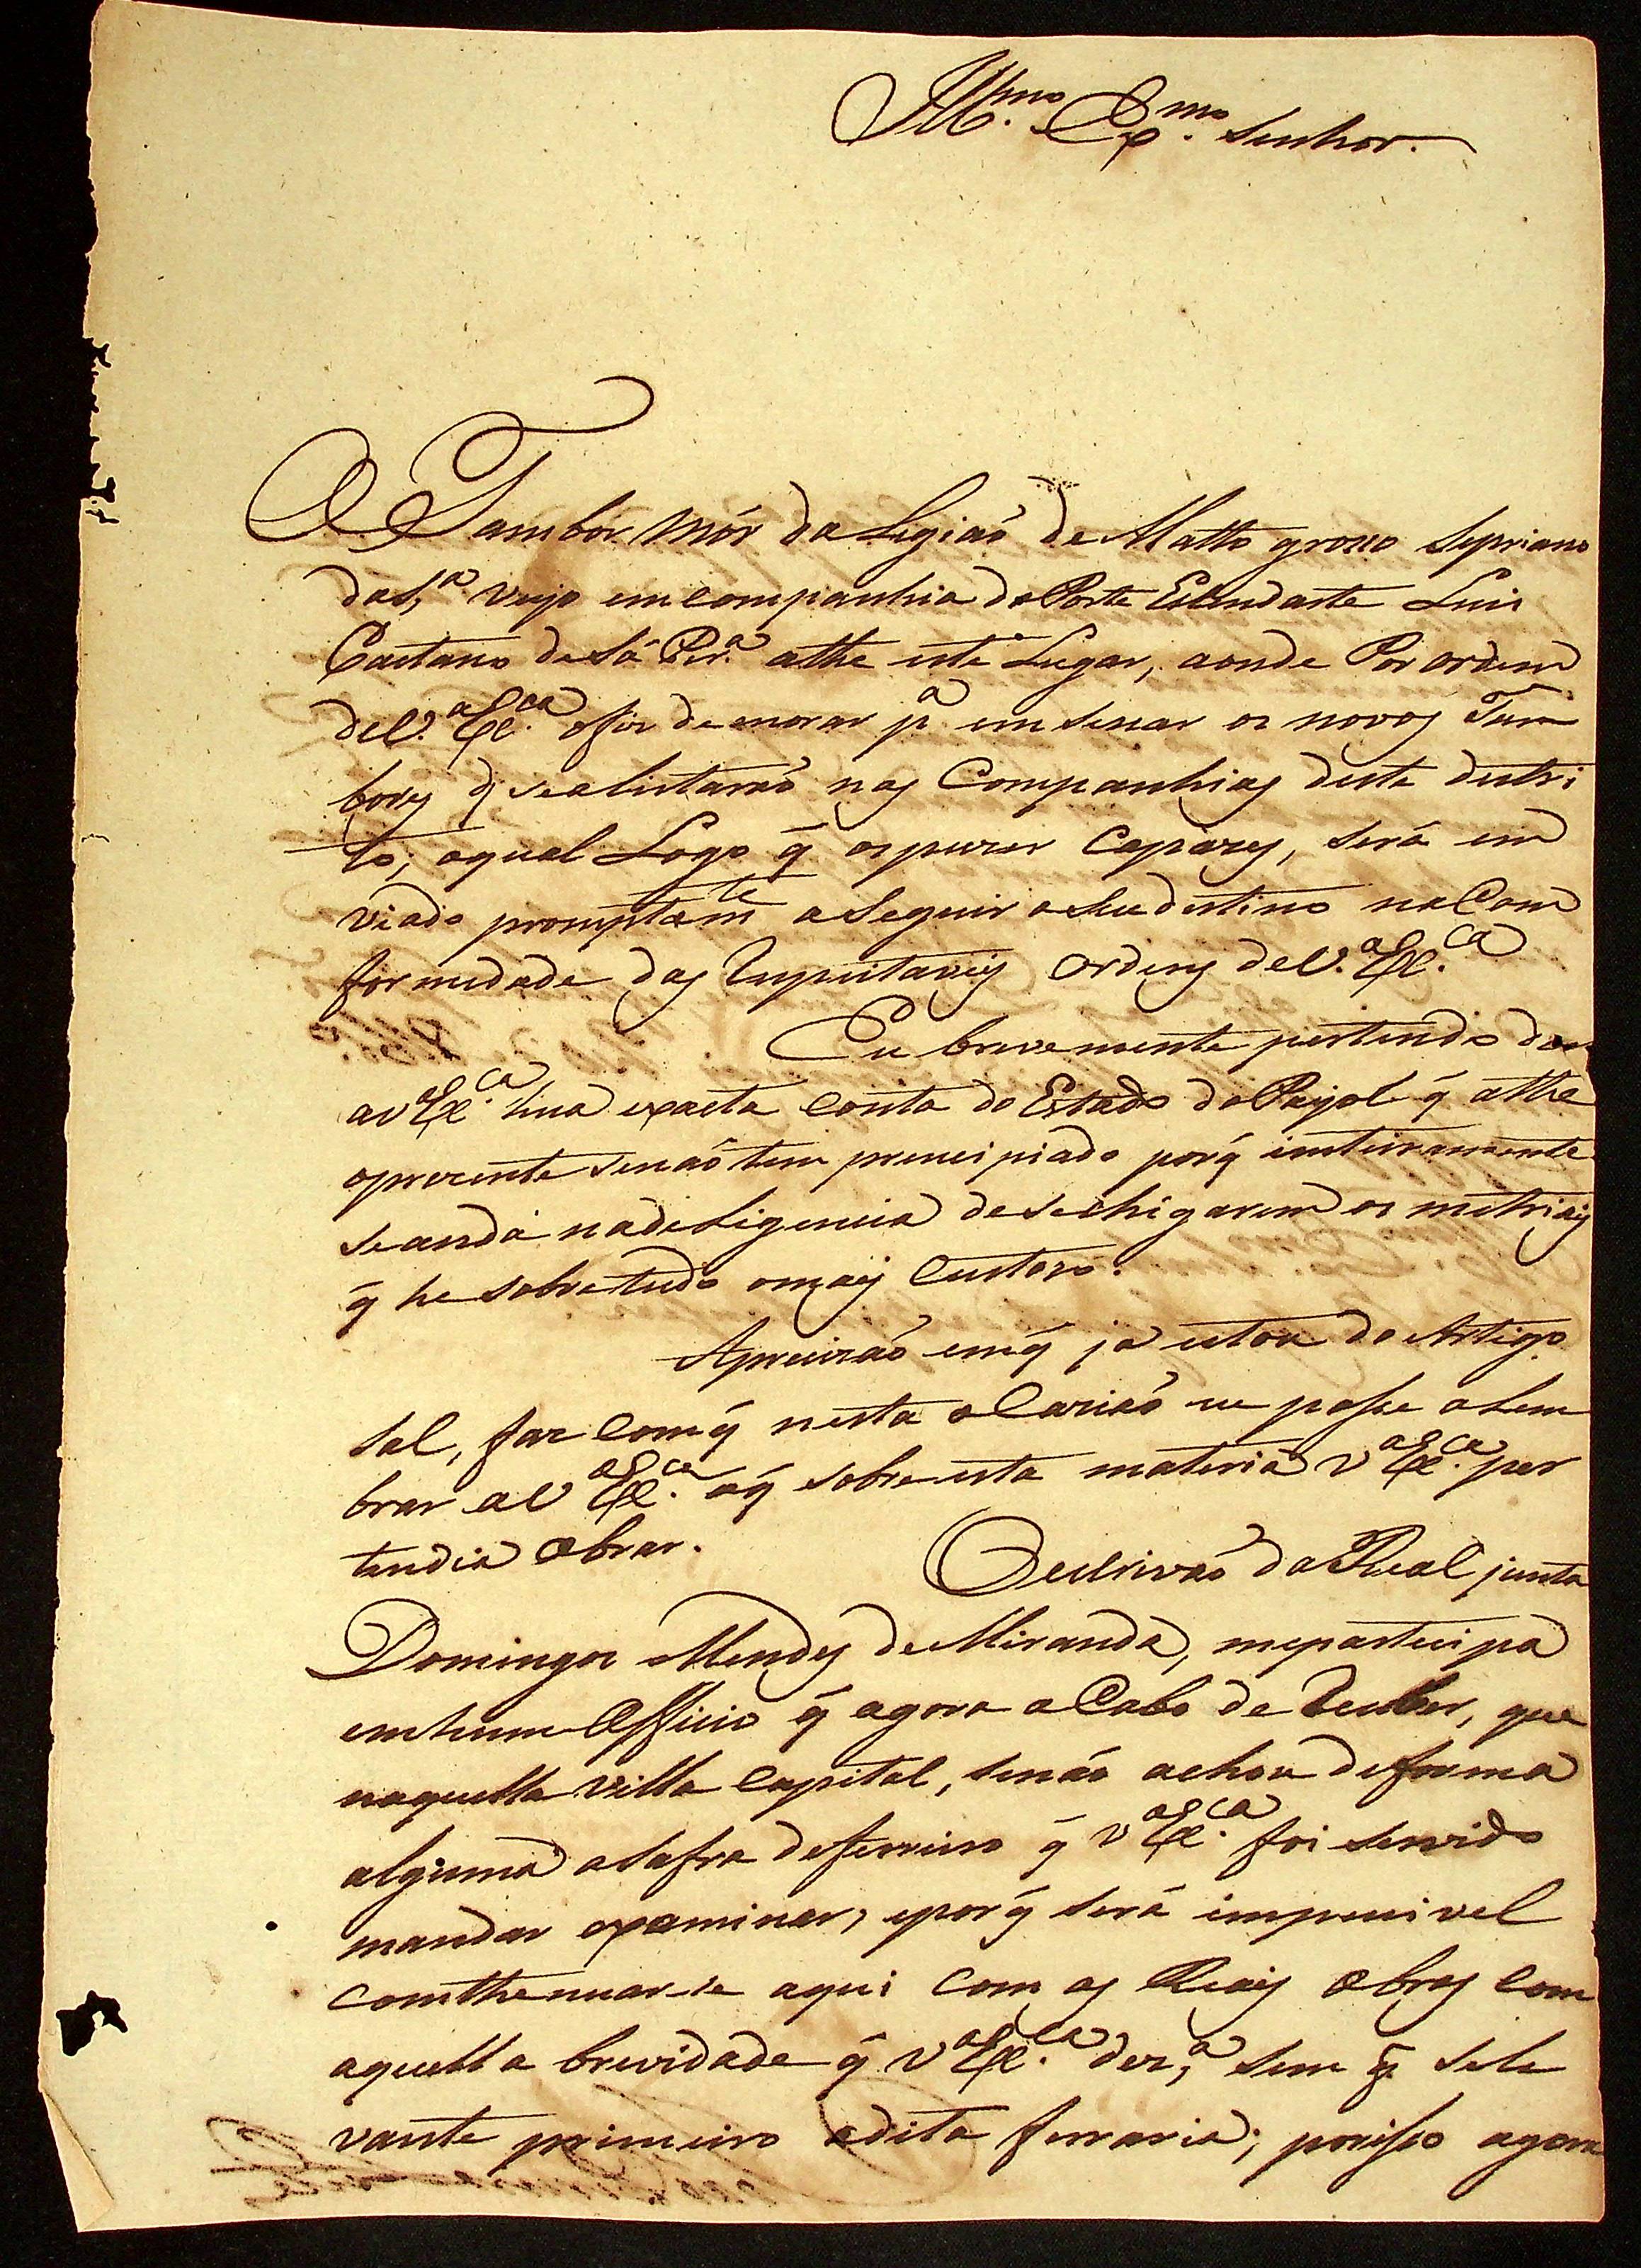 Ill.mo Ex.mo Senhor.
O Tambor Mór da Legiaõ de Matto grosso Sepriano
da S.ª veyo em companhia do Porte Estendarte Luis
Caetano de Sá Per.ª athe este Lugar, aonde Por ordem
de V.ª Ex.ca o fis demorar p.ª emsenar os novos Tam
bores q̃ se alistaraõ nas Companhias deste destri
to; o qual Logo q̃ os puzer Capazes, será em
viado promptam.te a Seguir o Seu destino na Com
formidade das Respeitaveis ordens de V.ª Ex.ca
Eu brevemente pertendo dar
a V Ex.ca huá exacta Conta do Estado do Payol q̃ athe
o prezente se naõ tem prencipiado porq̃ imteiramente
se anda na deligencia de se chegarem os metriais
q̃ he sobre tudo o mais Custozo.
A precizaõ em q̃ ja estou do Artigo
Sal, faz Com q̃ nesta o Cazião re passe a Lem
brar a V.ª Ex.ca o q̃ sobre esta materia V.ª Ex.ca per
tendia obrar.
O escrivaõ da Real junta
Domingos Mendes de Miranda, me partecipa
em hum Officio q̃ agora a Cabo de receber, que
naquella Villa Capital, se naõ achou de forma
alguma a Safra de ferreiro q̃ V.ª Ex.ca foi Servido
mandar examinar, e por q̃ será impocivel
comthenuar-se aqui Com as Reais obras Com
aquella brevidade q̃ V.ª Ex.ca dez.ª sem q̃ se le
vante primeiro a dita ferraria; por isso agora